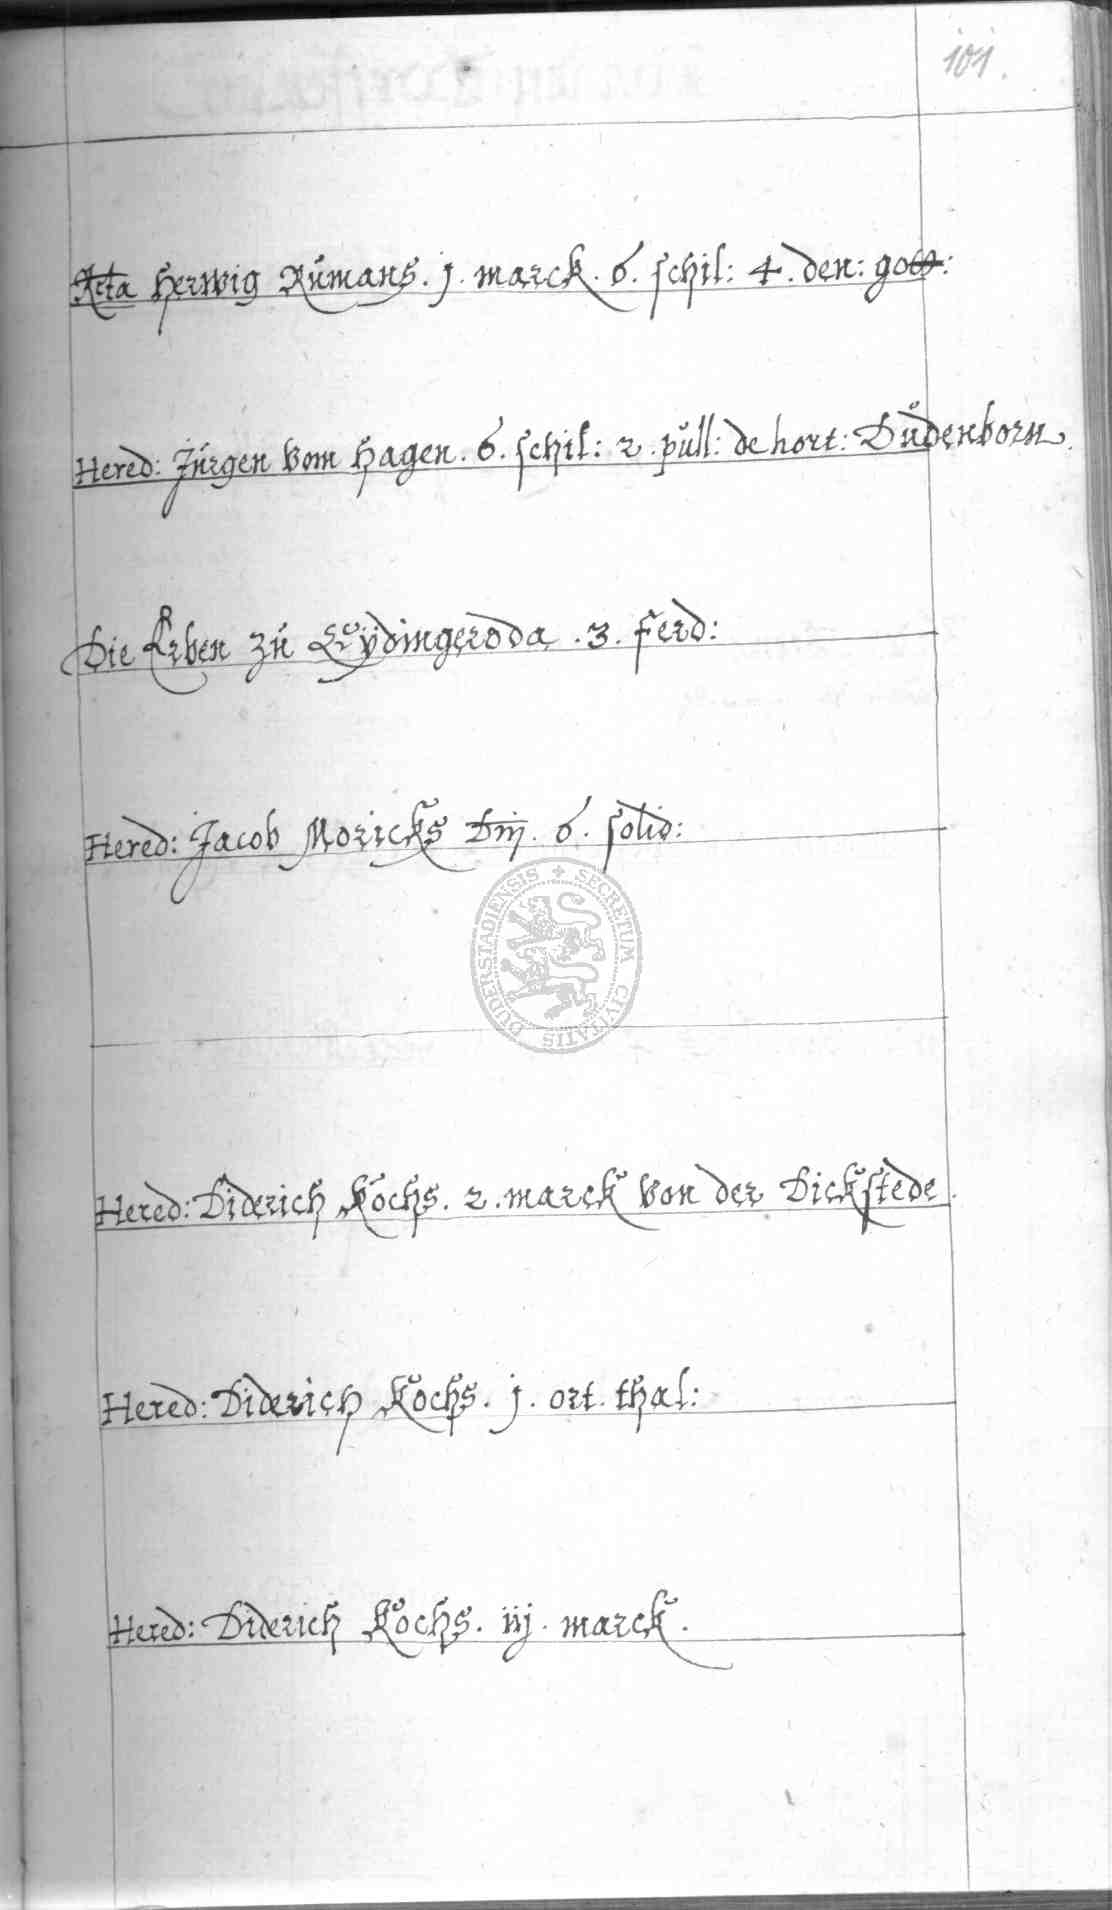 101.
Relta Herwig Rümans. j. marck. 6. schil: 4. den: gott:
Hered: Jürgen vom Hagen. 6. schil: 2. pull: de hort: Düdenborn.
Die Erben zu Lüÿdingeroda. 3. Ferd:
Hered: Jacob Moricks 6. solid:
DUDERSTADIENSIS + SECRETUM CIVITATIS
Hered: Diderich Kochs. 2. marck von der Dickstede.
Hered: Diderich Kochs. j. ort. thal:
Hered: Diderich Kochs. iij. marck.